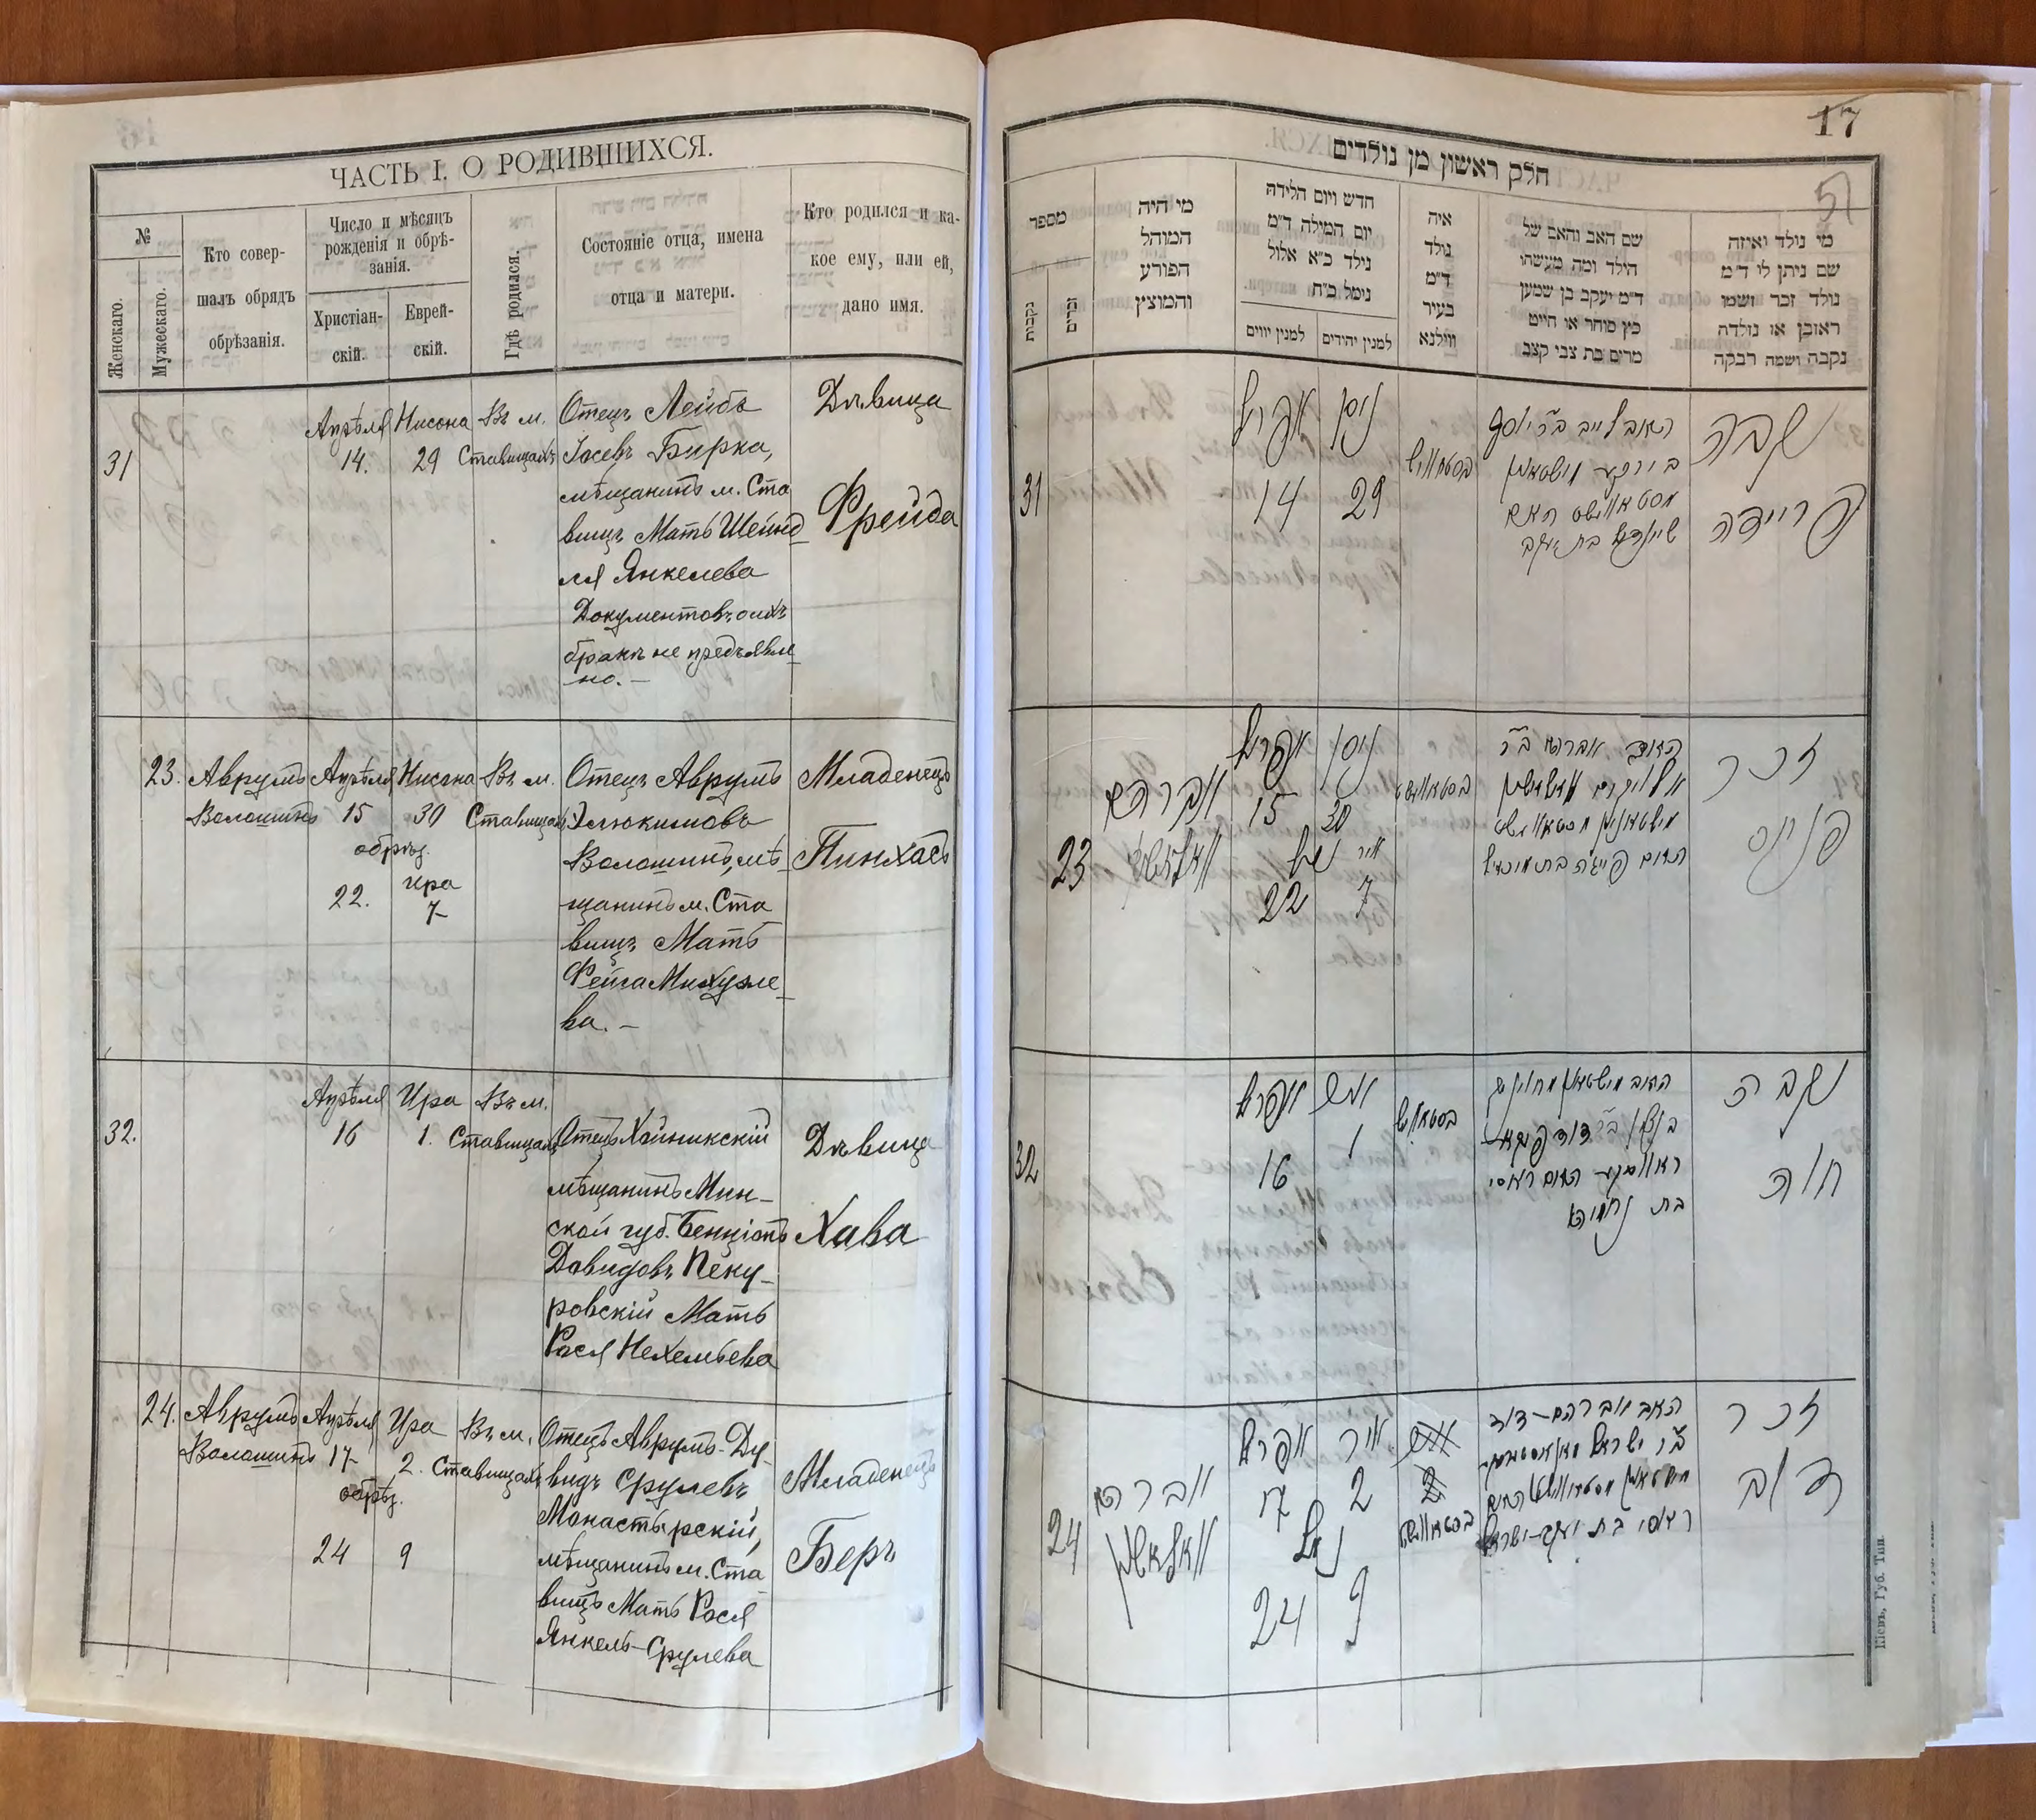 ЧАСТЬ I. О РОДИВШИХСЯ.
№
Женскаго.
Мужескаго.
Кто совер-
шалъ обрядъ
обрѣзанія.
Число и мѣсяцъ
рожденія и обрѣ-
занія.
Христіан-
скій.
Еврей-
скій.
Гдѣ родился.
Состояніе отца, имена
отца и матери.
Кто родился и ка-
кое ему, или ей,
дано имя.
31
Апрѣля
14.
Нисона
29
Въ м.
Ставищахъ
Отецъ Лейбъ
Іосевъ Бирка,
мѣщанинъ м. Ста
вищъ Мать Шейнд
ля Янкелева
Документовъ о ихъ
бракѣ не предъявле
но. —
Дѣвица
Фрейда
23.
Аврумъ
Волошинъ
Апрѣля
15
обрѣз.
22.
Нисана
30
Ира
7
Въ м.
Ставищахъ
Отецъ Аврумъ
Элюкимовъ
Волошинъ, мѣ
щанинъ м. Ста
вищъ Мать
Фейга Михуле
ва. —
Младенецъ
Пинхасъ
32.
Апрѣля
16
Ира
1.
Въ м.
Ставищахъ
Отецъ Хойникскій
мѣщанинъ Мин-
ской губ. Бенціонъ
Давидовъ Пеку-
ровскій Мать
Рася Нехемьева
Дѣвица
Хава
24.
Аврумъ
Волошинъ
Апрѣля
17
обрѣз.
24
Ира
2.
9
Въ м.
Ставищахъ
Отецъ Аврумъ-Ду
видъ Срулевъ
Монастырскій,
мѣщанинъ м. Ста
вищъ Мать Рася
Янкель-Срулева
Младенецъ
Беръ
17
51
חלק ראשון מן נולדים
מספר
נקבות
זכרים
מי היה
המוהל
הפורע
והמוצץ
חדש ויום הלידה
יום המילה ד"מ
נילד כ"א אלול
נימל כ"ח
למנין יווים
למנין יהודים
איה
נולד
ד"מ
בעיר
ווילנא
שם האב והאם של
הילד ומה מעשהו
ד"מ יעקב בן שמען
כץ סוחר או חייט
מרים בת צבי קצב
מי נולד ואיזה
שם ניתן לו ד"מ
נולד זכר ושמו
ראובן או נולדה
נקבה ושמה רבקה
31
אפריל
14
ניסן
29
האב לייב ב"ר יוסף
בירקע
שיינדל בת יעקב
נקבה
פריידה
23
אברהם
וואלאשין
אפריל
15
נימול
22
ניסן
30
אייר
7
זכר
פנחס
32
אפריל
16
1
בת נחמיה
נקבה
חוה
24
אברהם
וואלאשין
אפריל
17
נימול
24
אייר
2
9
האב אברהם-דוד
ב"ר ישראל
ראסי בת יעקב-ישראל
זכר
דוב
Кіевъ, Губ. Тип.